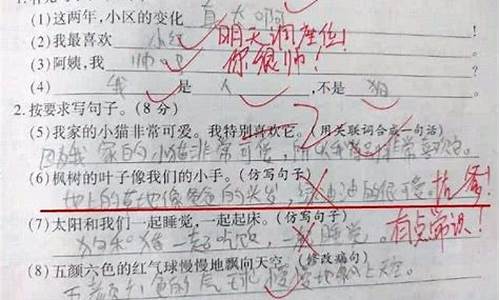 (1)这两年,小区的变化 真大啊
(2)我最喜欢 小红 明天调座位!
(3)阿姨,我 帅吗 你很帅!
(4) 我 是 人 ,不是 狗
2.按要求写句子。(8分)
(5)我家的小猫非常可爱。我特别喜欢它。(用关联词合成一句话)
因为我家的小猫非常可爱,所以我 非常喜欢它。
(6)枫树的叶子像我们的小手。(仿写句子)
地上的草地像爸爸的头发, 的很可爱。 抗爹!
(7)太阳和我们一起睡觉,一起起床。(仿写句子)
狗和猪一起吃饭,一起睡觉。 有点常识!
(8)五颜六色的红气球慢慢地飘向天空。(修改病句)
五颜六色的气球慢慢地飘上天空。